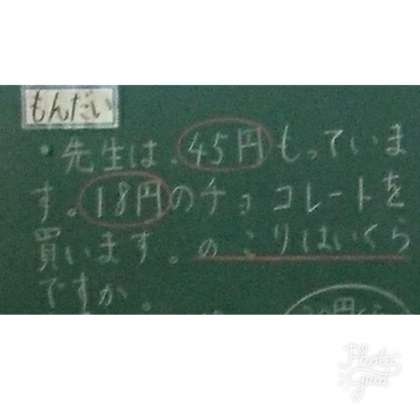 もんだい
・先生は、45円もっていま
す。18円のチョコレートを
買います。のこりはいくら
ですか。